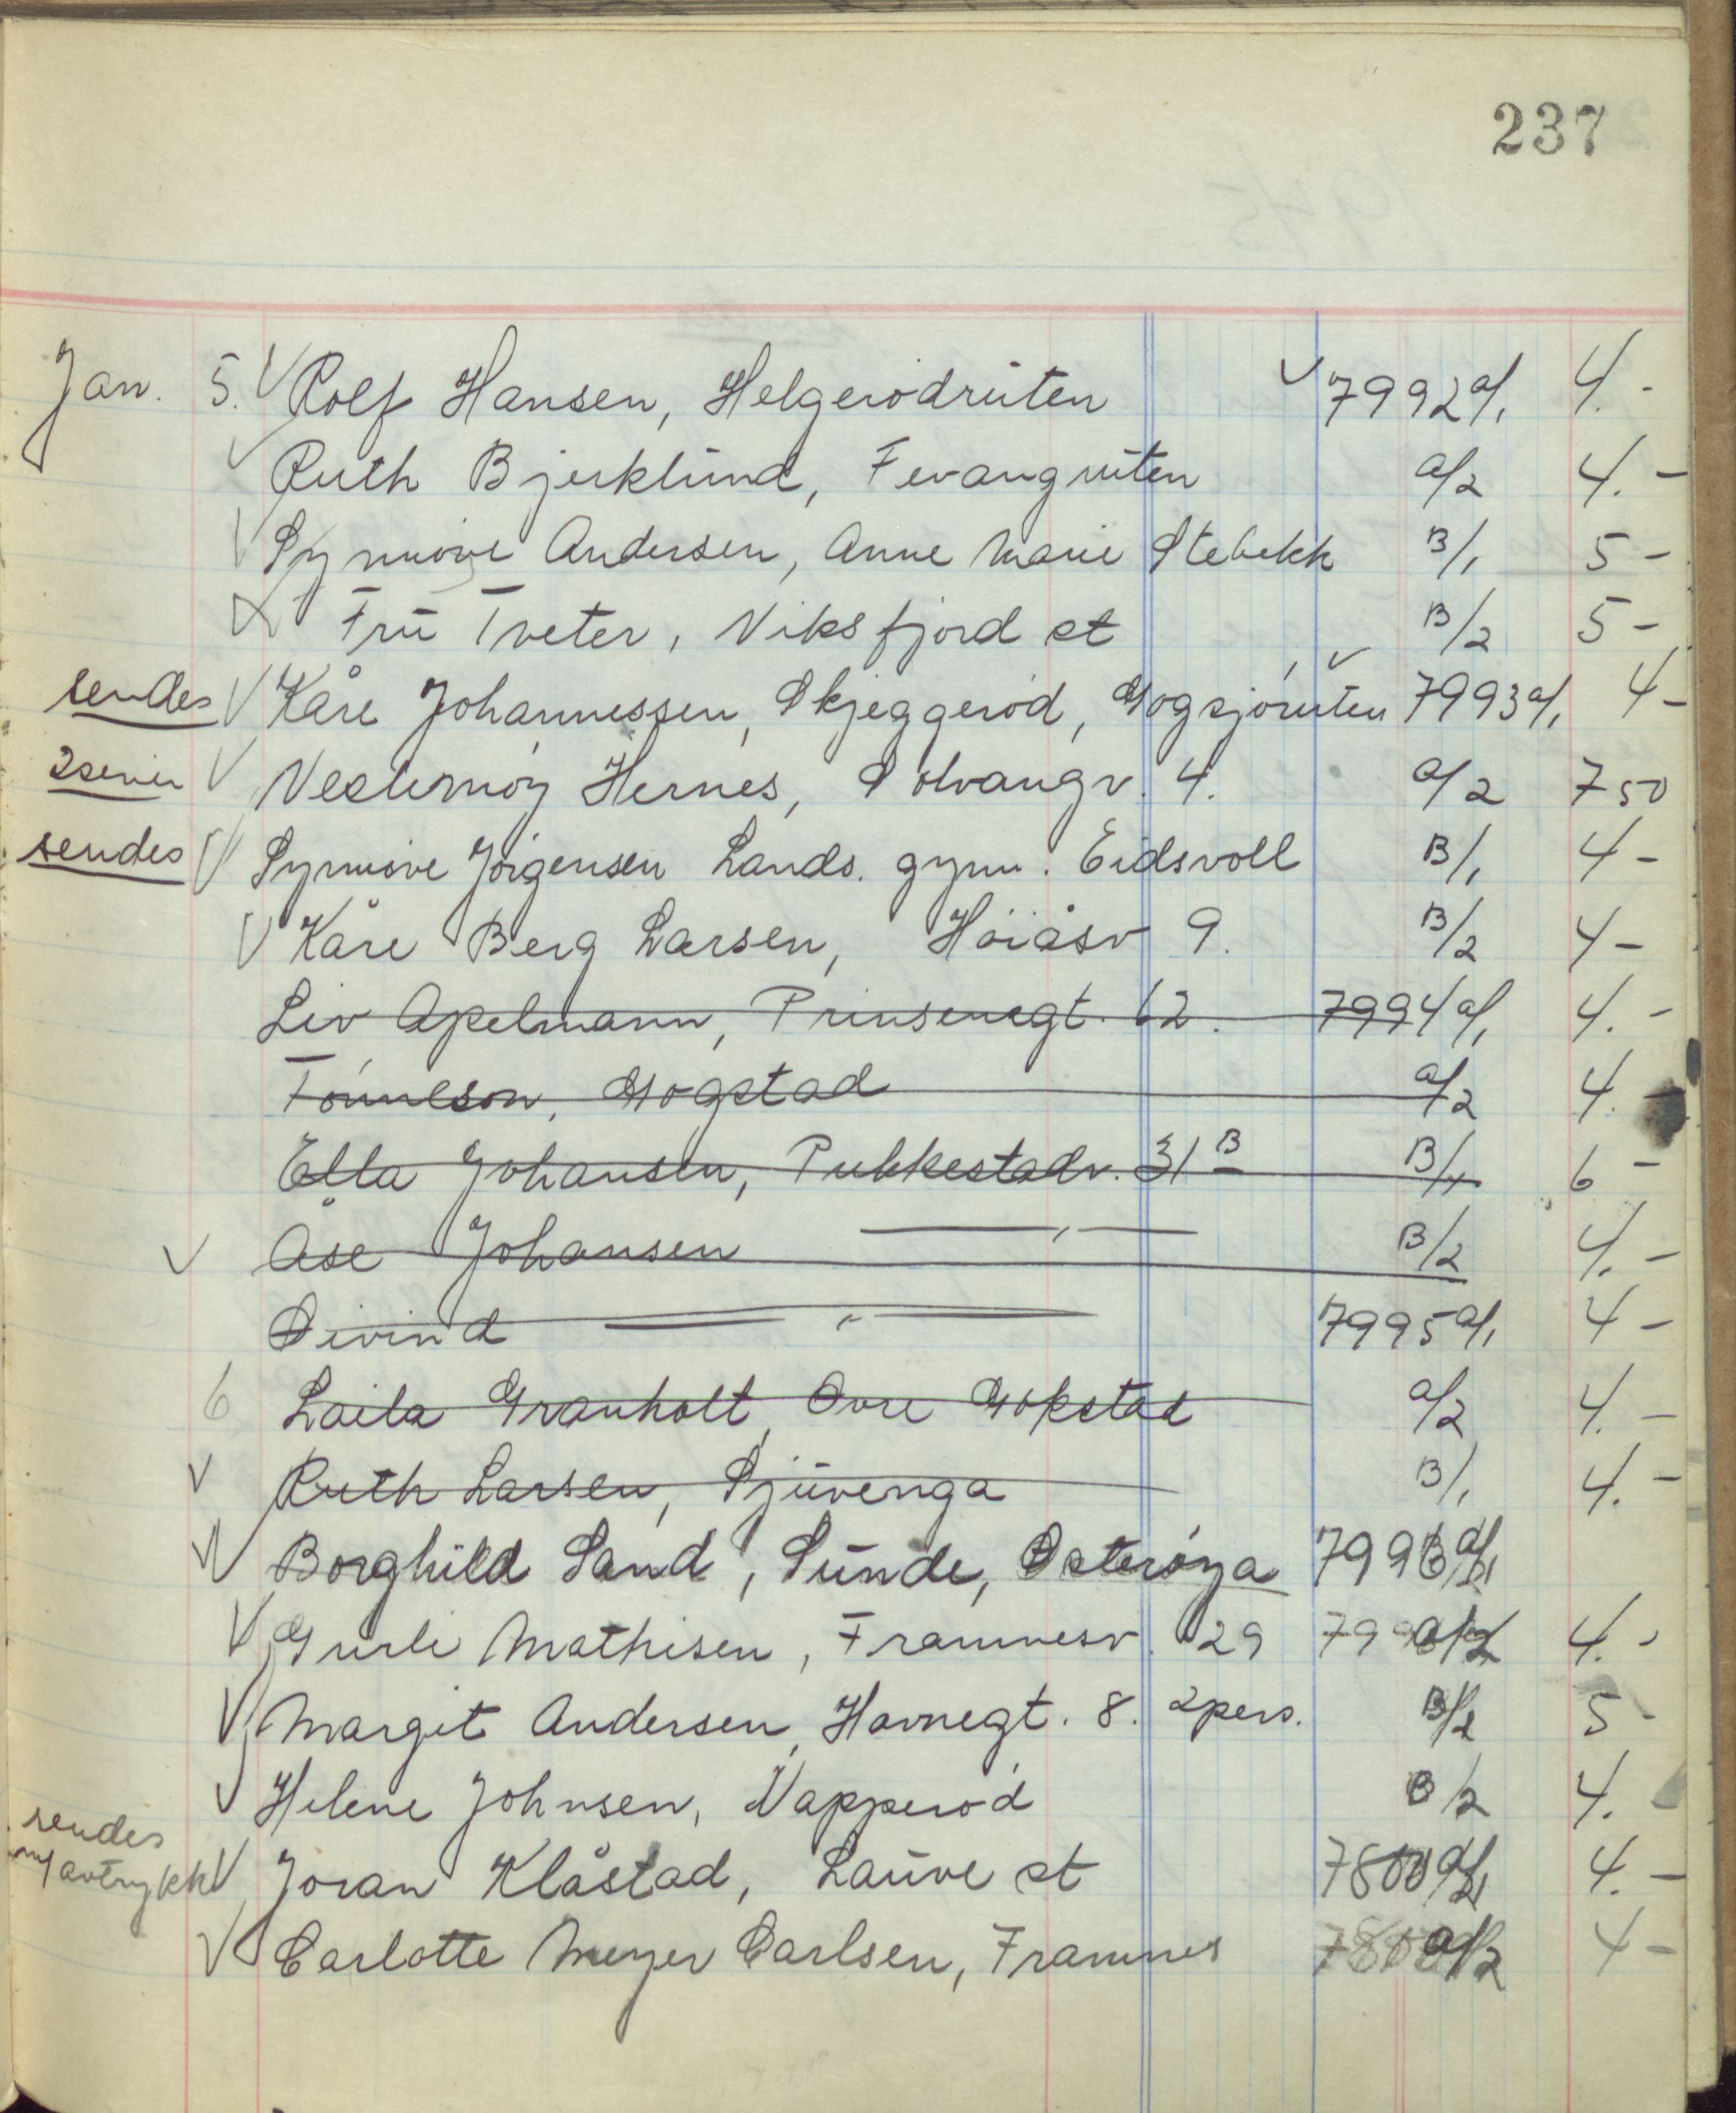 237
Jan. 5. √ Rolf Hansen, Helgerødruten √ 7992 a/1 4.-
√ Ruth Bjerklund, Fevangruten a/2 4.-
√ Synnøve Andersen, Anne Marie Stebekk B/1 5-
√ Fru Tveter, Viksfjord st B/2 5-
sendes √ Kåre Johannessen, Skjeggerød, Gogsjøruten √ 7993 a/1 4-
2 serier √ Vesslemøy Hernes, Solvangv. 4. a/2 7 50
sendes √ Synnøve Jørgensen Lands. gymn. Eidsvoll B/1 4-
√ Kåre Berg Larsen, Høiåsv 9. B/2 4-
Liv Apelmann, Prinsensgt. 62. 7994 a/1 4.-
Gogstad a/2 4.
Ella Johansen, Pukkestadv. 31 B B/1 6-
√ Åse Johansen —,— B/2 4.-
Øivind — " — 7995 a/1 4-
6 Laila Granholt, Øvre Gokstad a/2 4.-
√ Ruth Larsen, Sjuvenga B/1 4.-
√ Borghild Sand, Sunde, Østerøya
√ Gurli Mathisen, Framnesv. 29 a/2 4.-
√ Margit Andersen, Havnegt. 8. 2 pers. 5-
√ Helene Johnsen, Napperød B/2 4.
sendes m/ avtrykk √ Joran Klåstad, Lauve st 7800 4.-
√ Carlotte Meyer Carlsen, Framnes a/2 4-